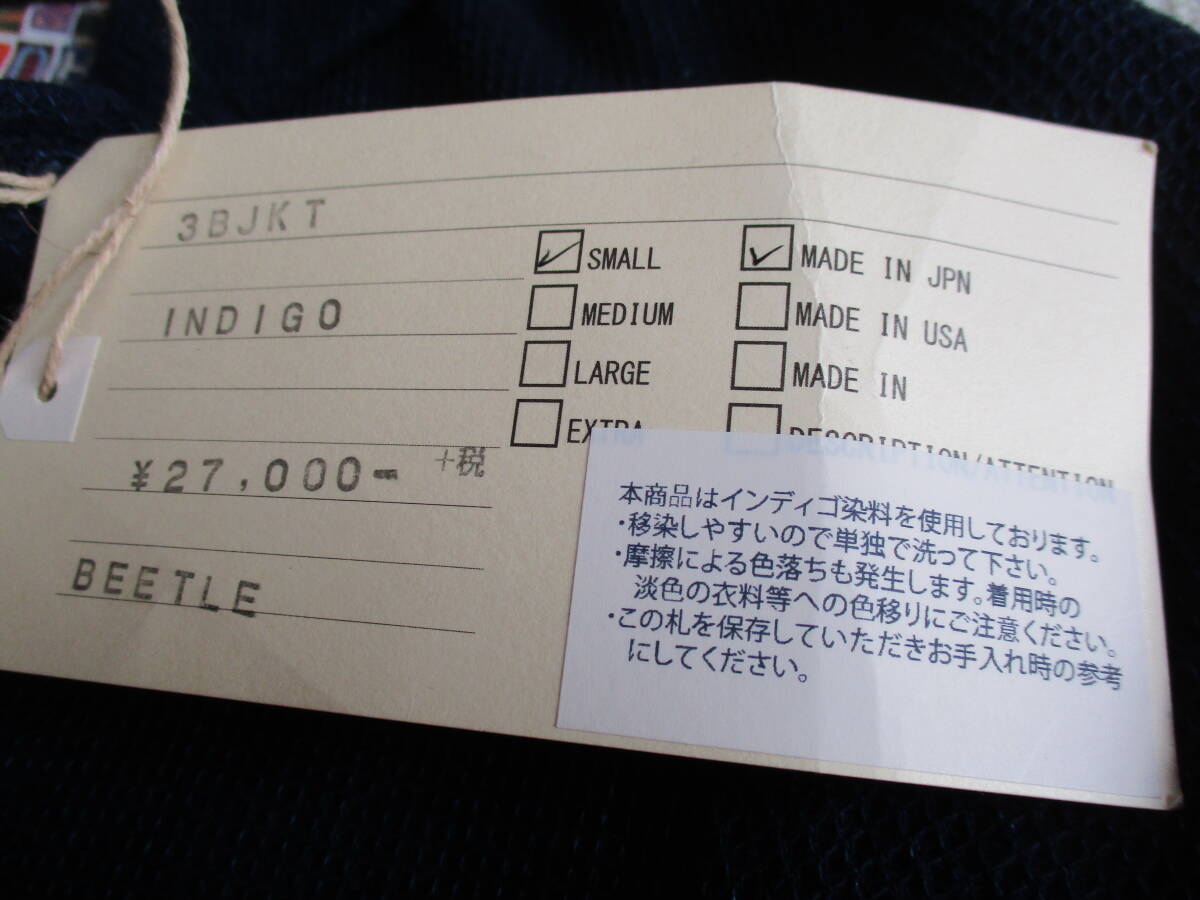 3BJKT
INDIGO
¥27,000- +税
BEETLE
SMALL
MEDIUM
LARGE
EXTRA
MADE IN JPN
MADE IN USA
MADE IN
DESCRIPTION/ATTENTION
本商品はインディゴ染料を使用しております。
・移染しやすいので単独で洗って下さい。
・摩擦による色落ちも発生します。着用時の
淡色の衣料等への色移りにご注意ください。
・この札を保存していただきお手入れ時の参考
にしてください。